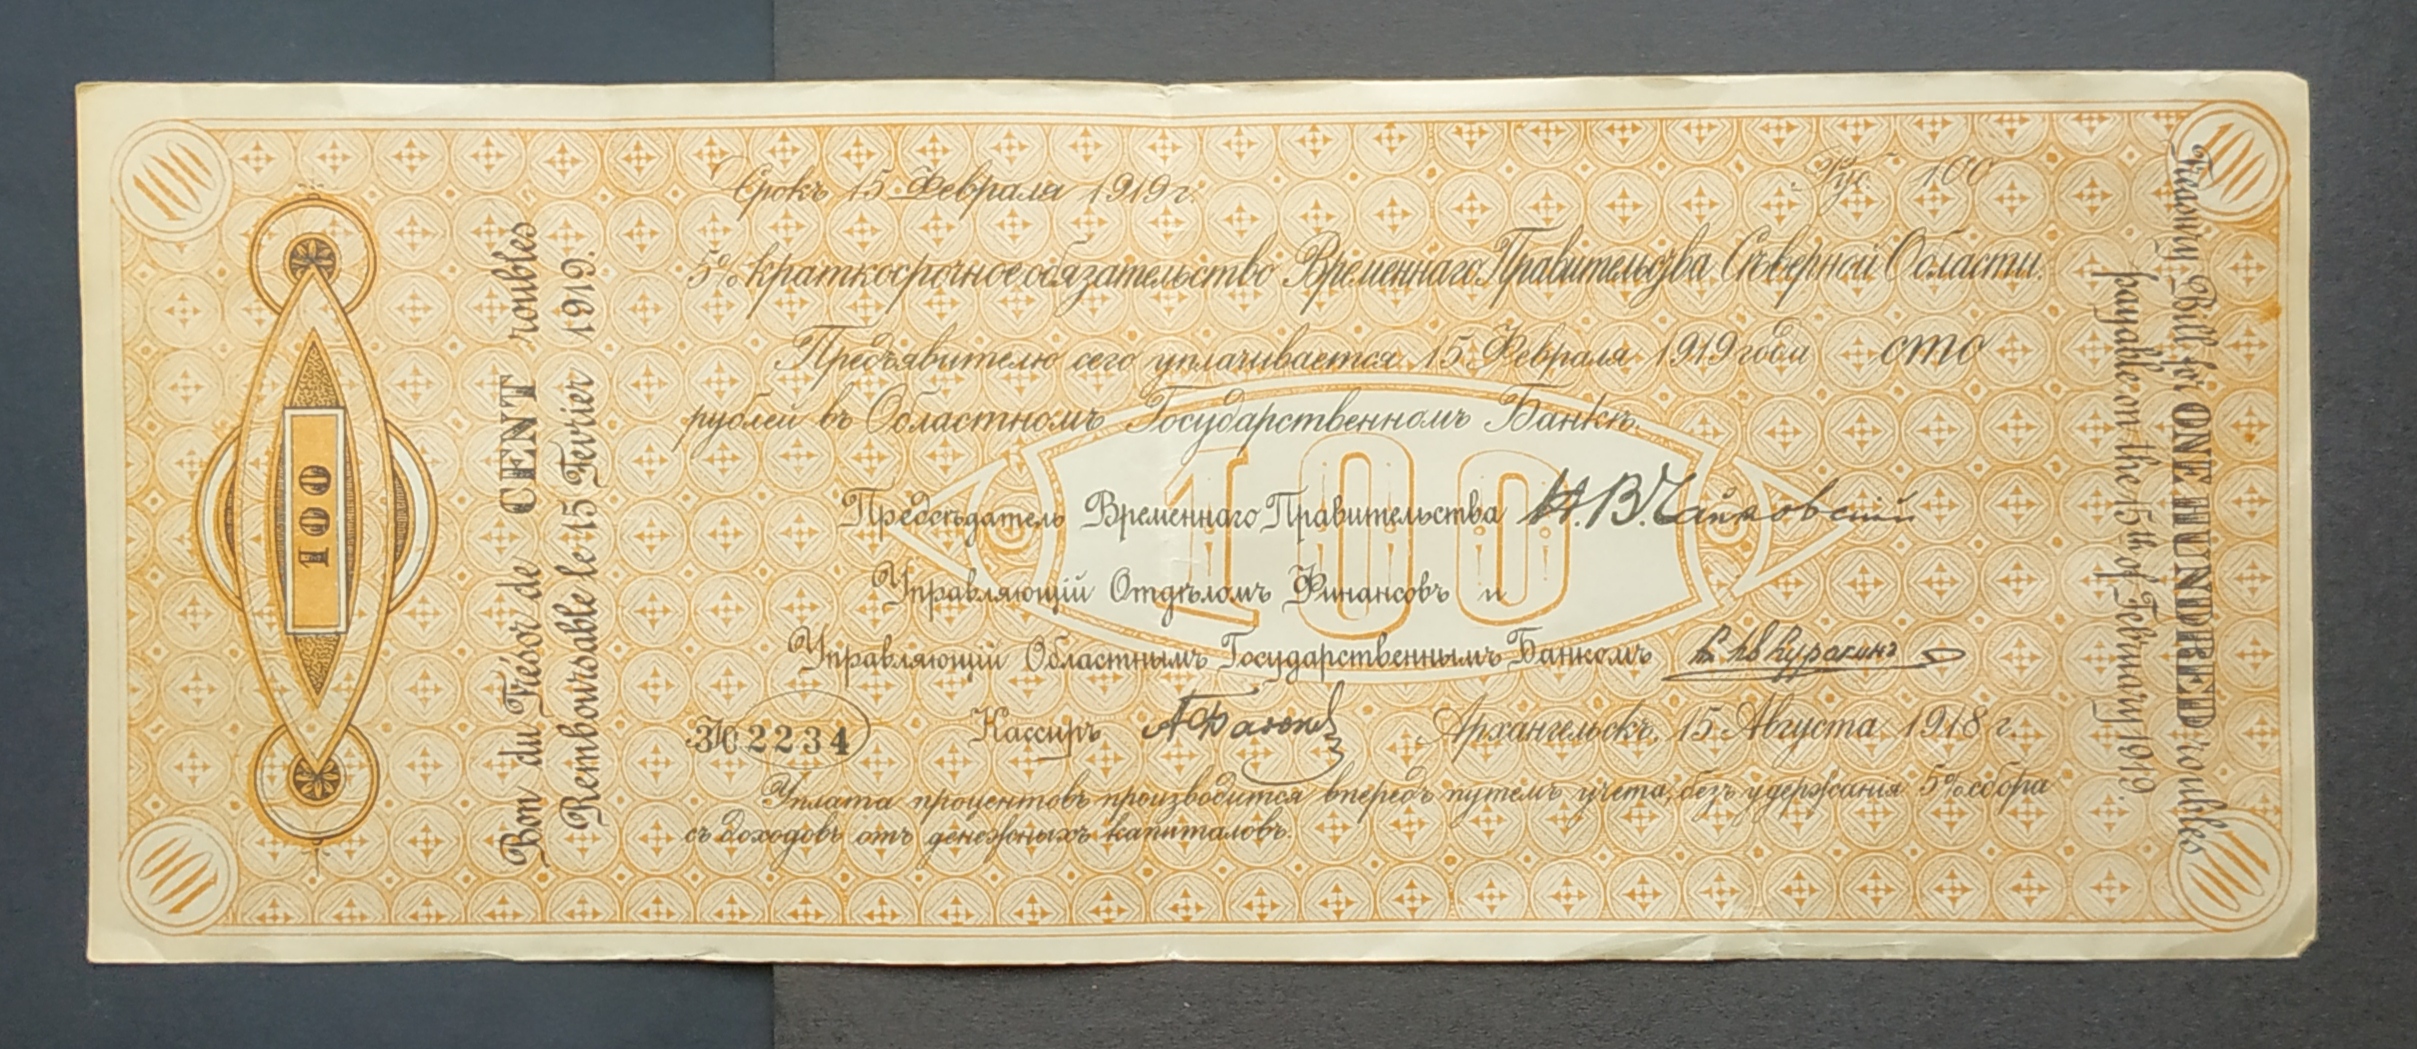 100
100
Срокъ 15 Февраля 1919 г.
Руб. 100
5% краткосрочное обязательство Временнаго Правительства Сѣверной Области.
Предъявителю сего уплачивается 15 Февраля 1919 года сто
рублей въ Областномъ Государственномъ Банкѣ.
100
Предсѣдатель Временнаго Правительства Н. В. Чайковскій
Управляющій Отдѣломъ Финансовъ и
Управляющій Областнымъ Государственнымъ Банкомъ
№ 2234
Кассиръ
Архангельскъ, 15 Августа 1918 г.
Уплата процентовъ производится впередъ путемъ учета, безъ удержанія 5% сбора
съ доходовъ отъ денежныхъ капиталовъ.
100
Bon du Trésor de CENT roubles
Remboursable le 15 Fevrier 1919.
Treasury Bill for ONE HUNDRED roubles
payable on the 15th of February 1919.
100
100